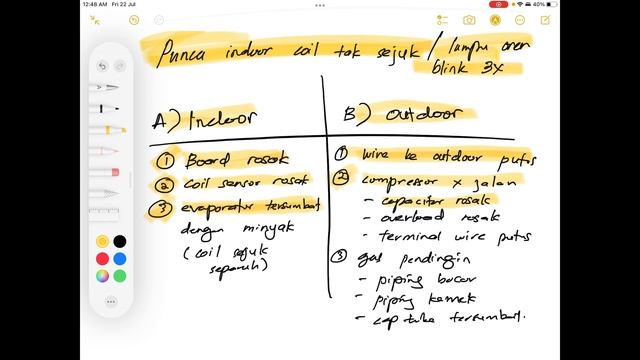 12:48 AM Fri 22 Jul
40%
Punca indoor coil tak sejuk / lampu oren
blink 3x
A) Indoor
① Board rosak
② coil sensor rosak
③ evaporator tersumbat
dengan minyak
(coil sejuk
separuh)
B) Outdoor
① wire ke outdoor putus
② compressor x jalan
- capacitor rosak
- overload rosak
- terminal wire putus
③ gas pendingin
- piping bocor
- piping kemek
- cap tube tersumbat.